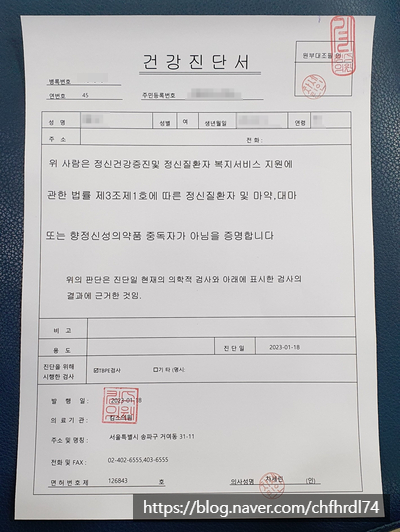 건강진단서
원부대조필 인
병록번호
연번호 45 주민등록번호
성 명 성별 여 생년월일 연령
주 소 전 화 :
위 사람은 정신건강증진및 정신질환자 복지서비스 지원에
관한 법률 제3조제1호에 따른 정신질환자 및 마약,대마
또는 향정신성의약품 중독자가 아님을 증명합니다
위의 판단은 진단일 현재의 의학적 검사와 아래에 표시한 검사의
결과에 근거한 것임.
비 고
용 도 진 단 일 2023-01-18
진단을 위해
시행한 검사 ☑TBPE검사 □기 타 (명시)
발 행 일 : 2023-01-18
의 료 기 관 :
주소 및 명칭 : 서울특별시 송파구 거여동 31-11
전화 및 FAX : 02-402-6555,403-6555
면 허 번 호 제 126843 호 의사성명 (인)
https://blog.naver.com/chfhrdl74